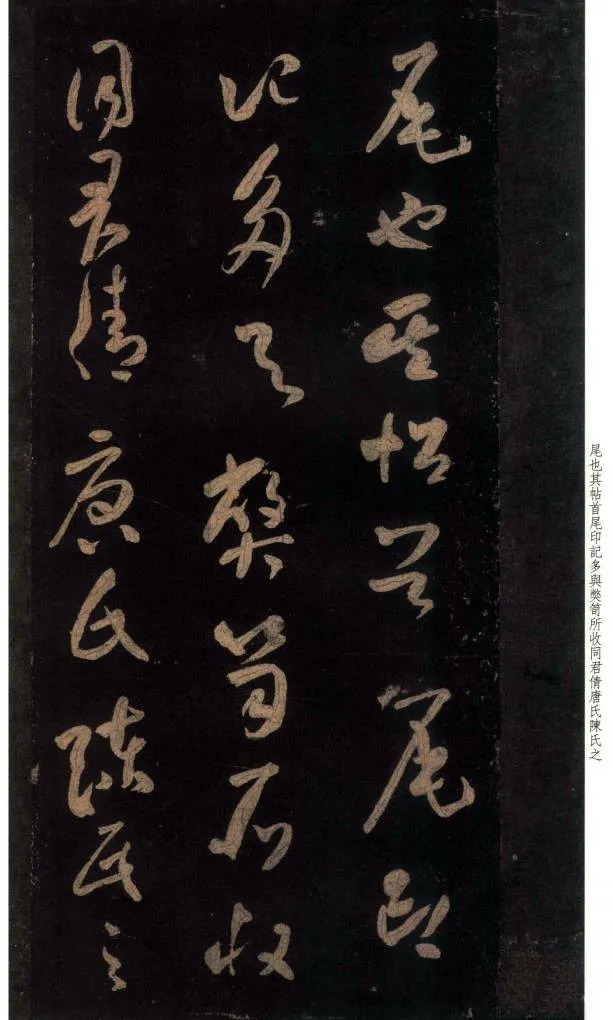 尾也其帖首尾印
記多與奬笥所收
同君倩唐氏陳氏之
尾也其帖首尾印記多與奬笥所收同君倩唐氏陳氏之